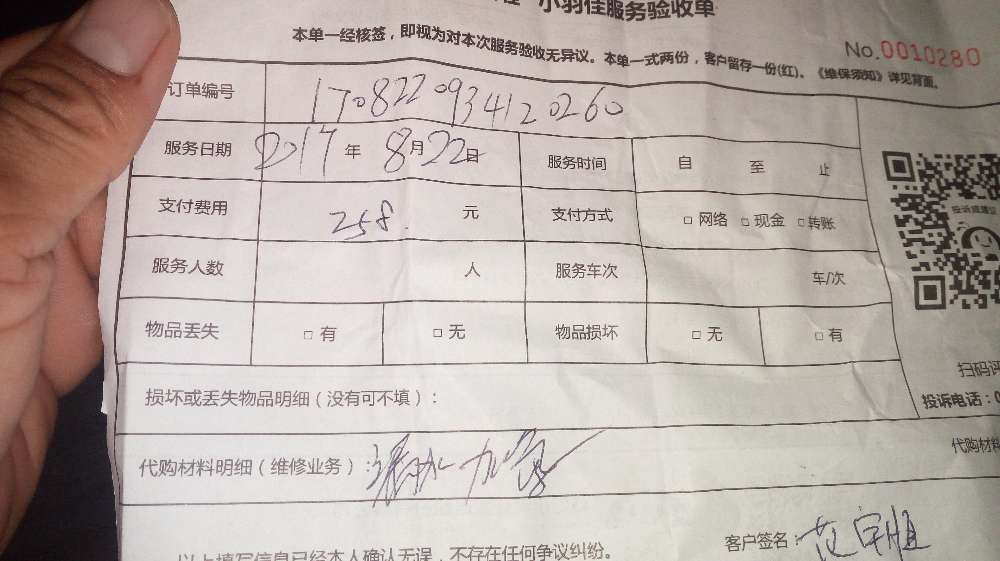 小羽佳服务验收单
本单一经核签，即视为对本次服务验收无异议。本单一式两份，客户留存一份(红)。《维保须知》详见背面。
No.0010280
订单编号 1708220934120260
服务日期 2017年 8月22日 服务时间 自 至 止
支付费用 258. 元 支付方式 □ 网络 □ 现金 □ 转账
服务人数 人 服务车次 车/次
物品丢失 □ 有 □ 无 物品损坏 □ 无 □ 有
投诉或建议
扫码评
投诉电话：0
损坏或丢失物品明细（没有可不填）：
代购材料
代购材料明细（维修业务）： 漏水 加
以上填写信息已经本人确认无误，不存在任何争议纠纷。
客户签名： 范